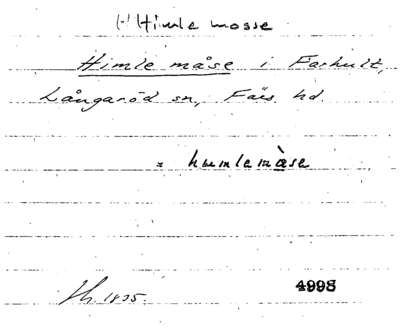 (-) Himle mosse
Himle måse i Farhult,
Långaröd sn, Färs hd.
= humlemåse
1835.
4998